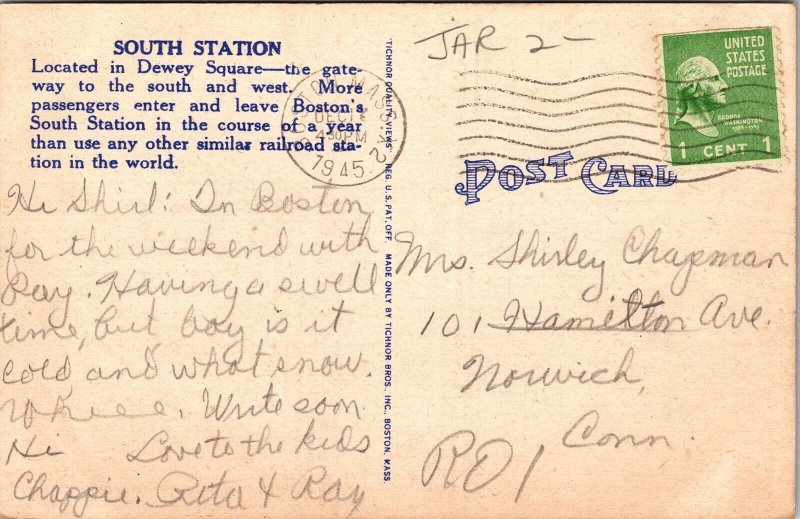 SOUTH STATION
Located in Dewey Square—the gate-
way to the south and west. More
passengers enter and leave Boston's
South Station in the course of a year
than use any other similar railroad sta-
tion in the world.
Hi Shirl: In Boston
for the weekend with
Ray. Having a swell
time, but boy is it
cold and what snow.
Wheee. Write soon.
Hi Love to the kids
Chappie. Rita & Ray
BOSTON MASS.
DEC
4 30 PM
1945
2
"TICHNOR QUALITY VIEWS" REG. U.S. PAT. OFF. MADE ONLY BY TICHNOR BROS. INC., BOSTON, MASS.
JAR 2-
UNITED
STATES
POSTAGE
GEORGE
WASHINGTON
1789-1797
1 CENT 1
POST CARD
Mrs. Shirley Chapman
101 Hamilton Ave.
Norwich,
Conn.
RD1